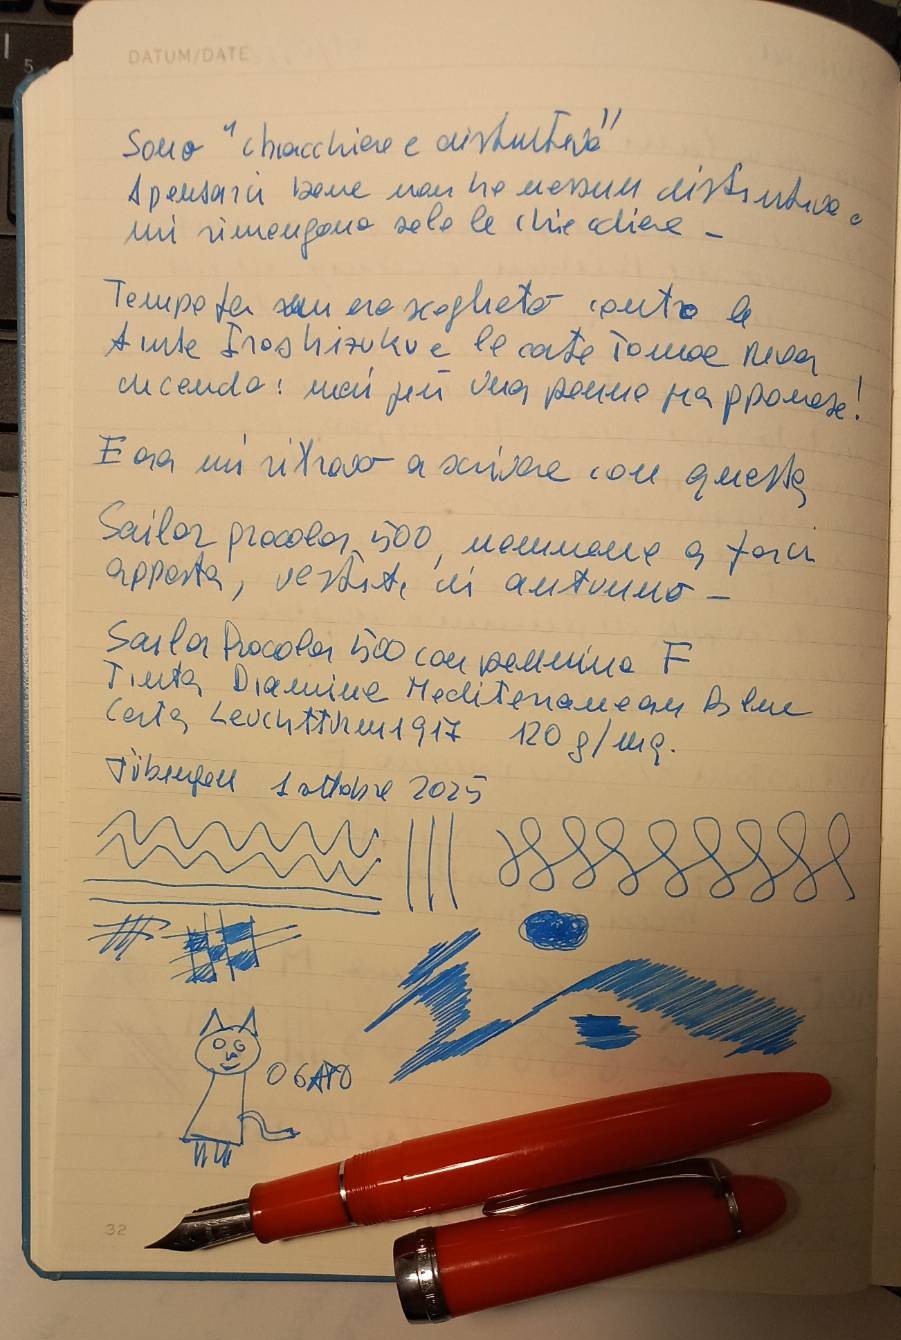 5
DATUM/DATE
Sono "chiacchiere e distintivo"
A pensarci bene non ho nessun distintivo e
mi rimangono solo le chiacchiere -
Tempo fa mi ero scagliato contro le
tinte Iroshizuku e le carte Tomoe River
dicendo: mai più una penna giapponese!
E ora mi ritrovo a scrivere con questa
Sailor procolor 500, nemmeno a farci
apposta, vestita di autunno -
Sailor Procolor 500 con pennino F
Tinta Diamine Mediterranean Blue
Carta Leuchtturm1917 120 g/mq.
Tübingen 1 ottobre 2025
O GATO
32